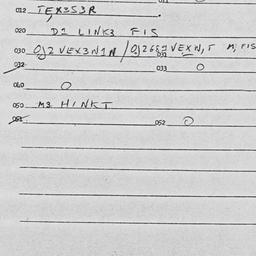 012 TEX3S3R
020 DI LINK3 FIS
030 OJ2VEX3N1N / OJ2661VEXN,T M,FIS
031
032
033 O
040 O
050 M3 HINKT
051 052 O